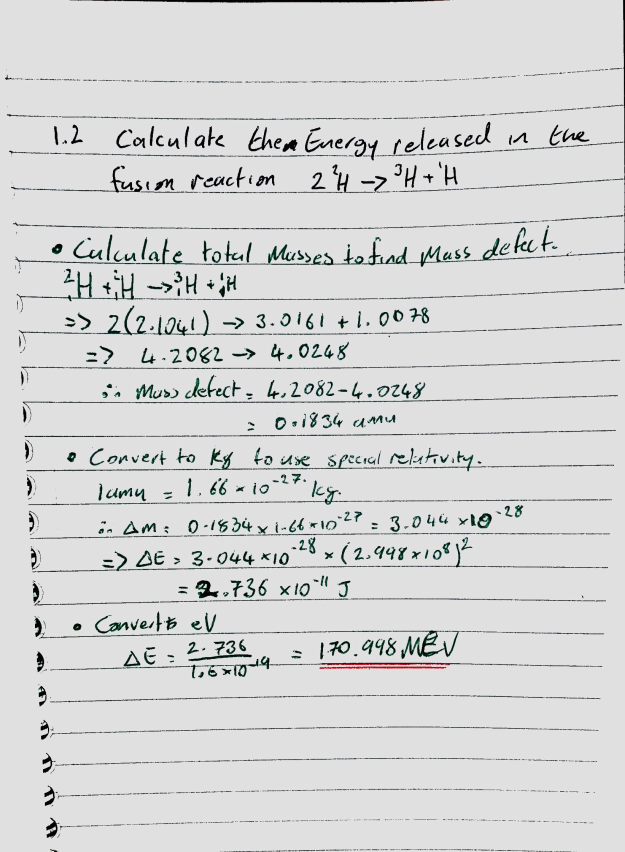 1.2 Calculate the Energy released in the
fusion reaction 2 ²H → ³H + ¹H
• Calculate total Masses to find Mass defect.
²₁H + ²₁H → ³₁H + ¹₁H
=> 2(2.1041) → 3.0161 + 1.0078
=> 4.2082 → 4.0248
∴ Mass defect = 4.2082 - 4.0248
= 0.1834 amu
• Convert to Kg to use special relativity.
1amu = 1.66 × 10⁻²⁷ kg.
∴ ΔM = 0.1834 × 1.66 × 10⁻²⁷ = 3.044 × 10⁻²⁸
=> ΔE = 3.044 × 10⁻²⁸ × (2.998 × 10⁸)²
= 2.736 × 10⁻¹¹ J
• Convert to eV
ΔE = 2.736 / 1.6 × 10⁻¹⁹ = 170.998 MeV